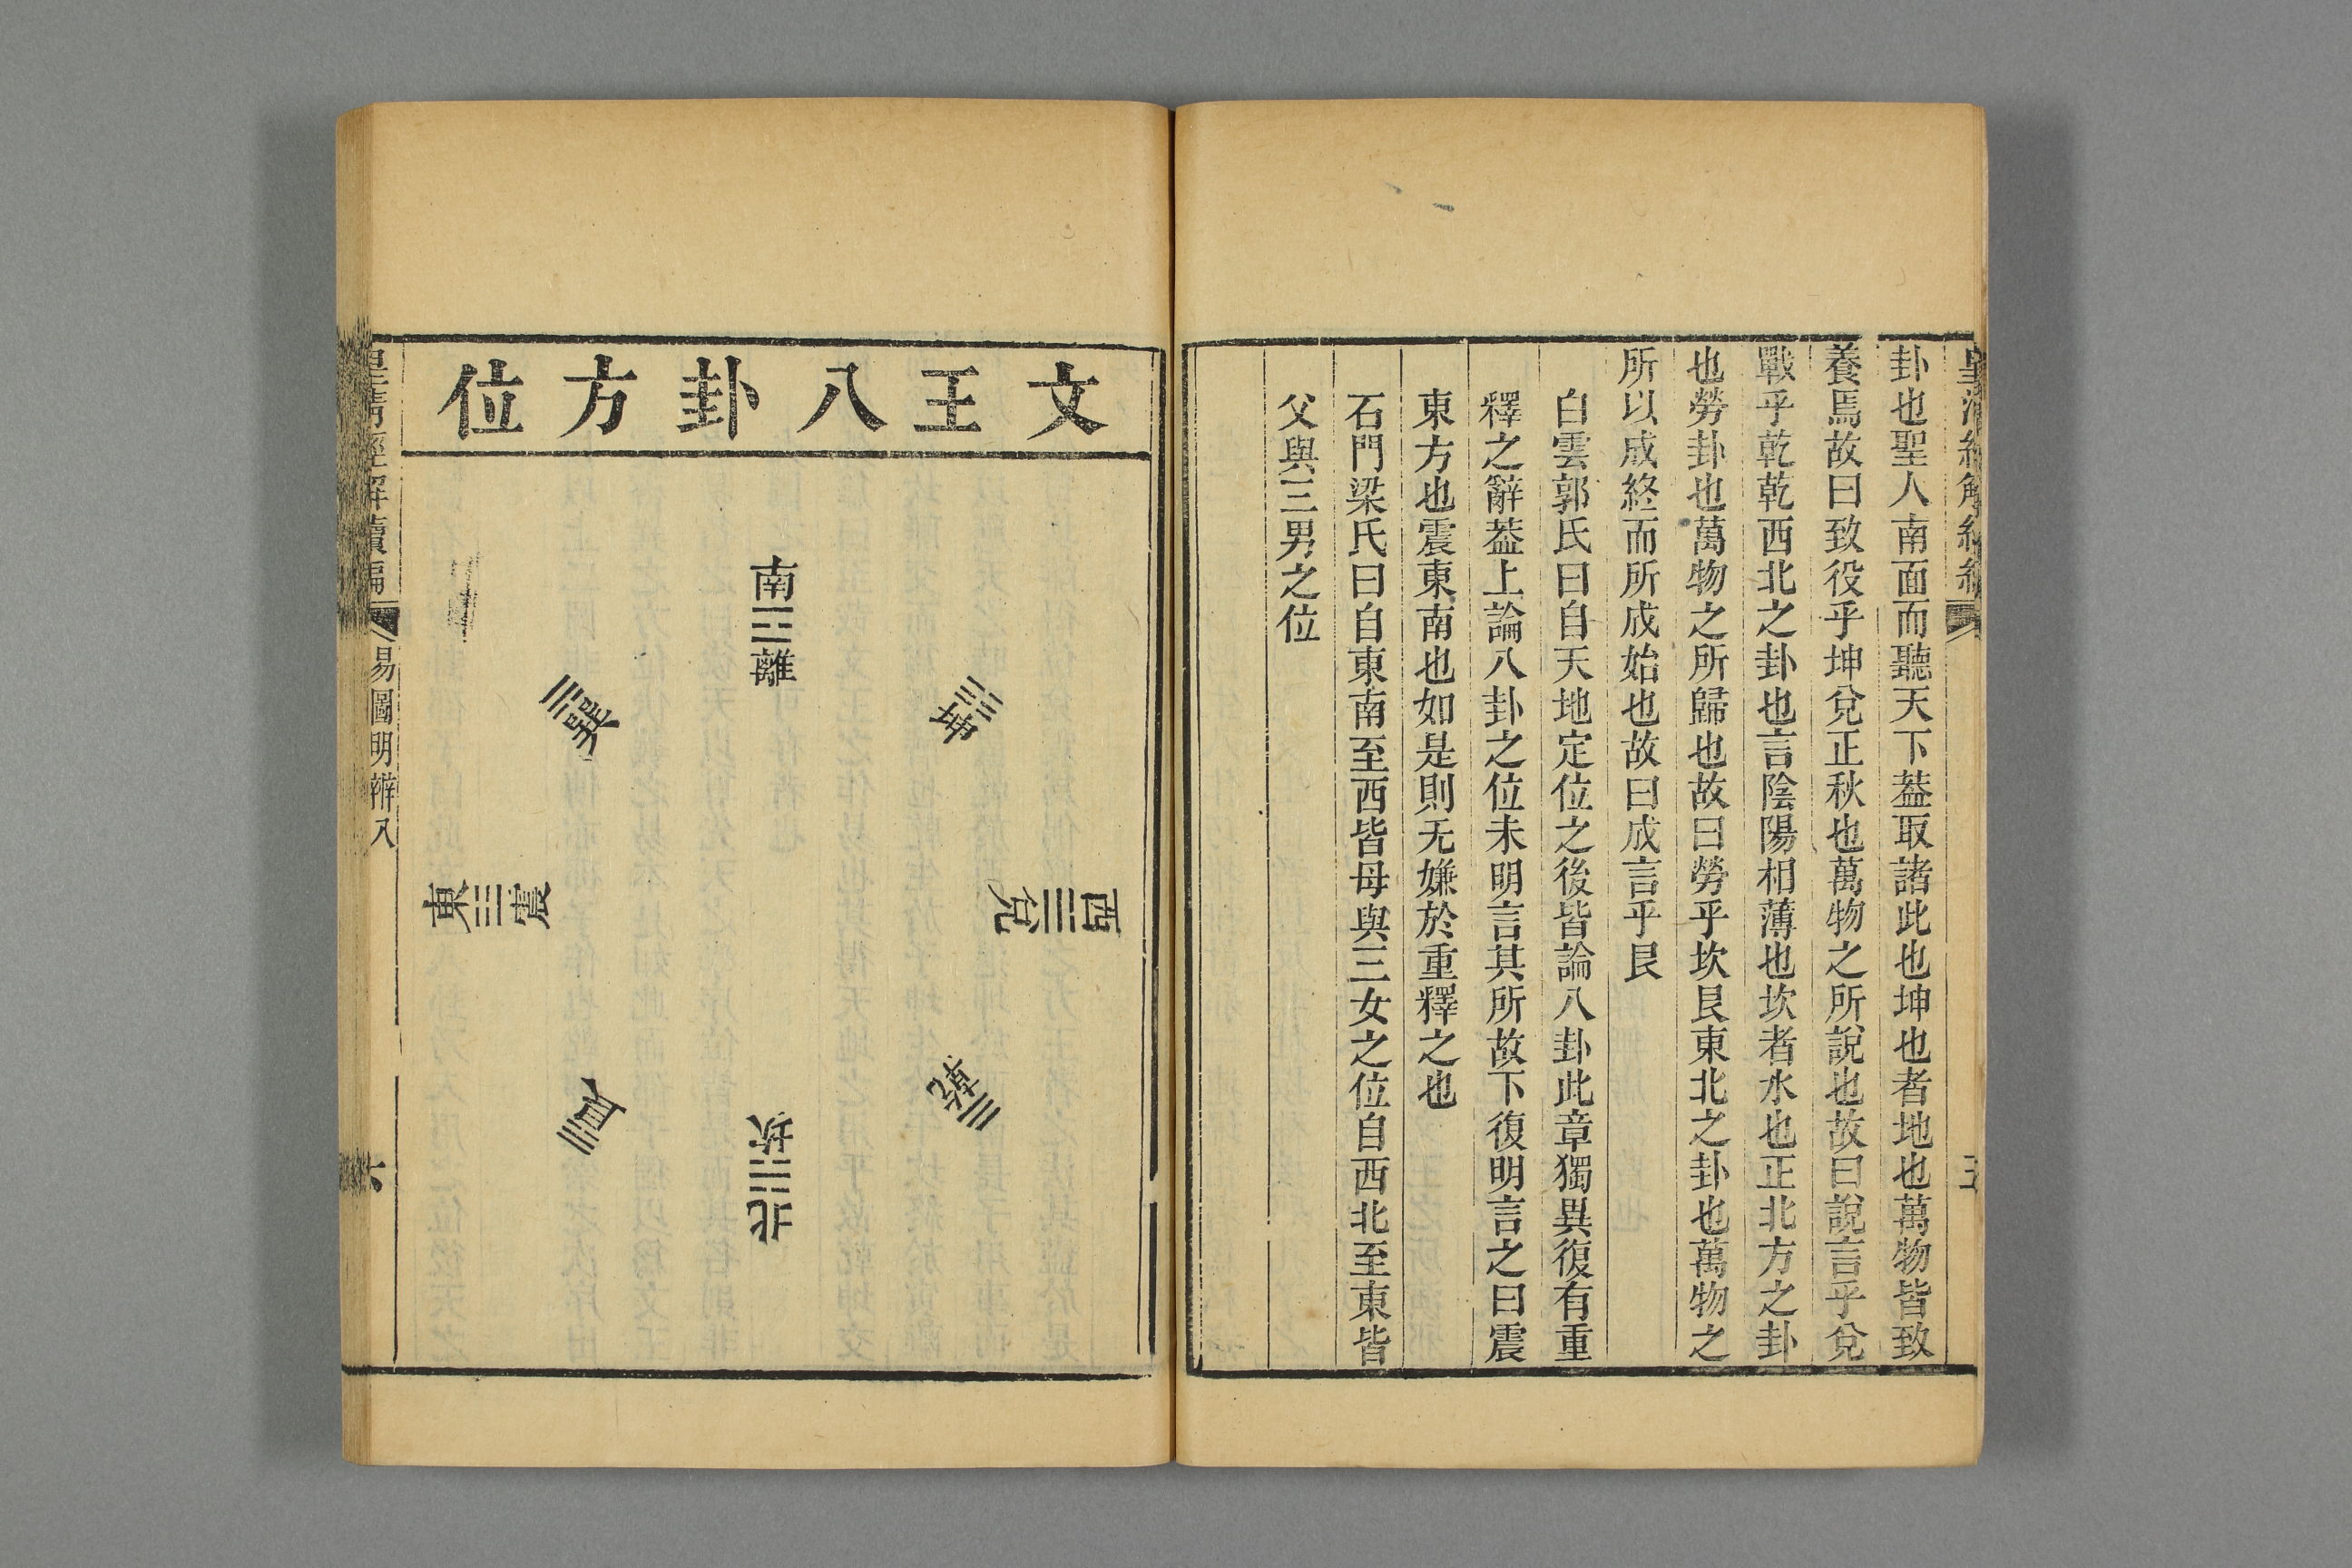 卦也聖人南面而聽天下葢取諸此也坤也者地也萬物皆致
養焉故曰致役乎坤兌正秋也萬物之所說也故曰說言乎兌
戰乎乾乾西北之卦也言陰陽相薄也坎者水也正北方之卦
也勞卦也萬物之所歸也故曰勞乎坎艮東北之卦也萬物之
所以成終而所成始也故曰成言乎艮
白雲郭氏曰自天地定位之後皆論八卦此章獨異復有重
釋之辭葢上論八卦之位未明言其所故下復明言之曰震
東方也震東南也如是則无嫌於重釋之也
石門梁氏曰自東南至西皆母與三女之位自西北至東皆
父與三男之位
文王八卦方位
南☲離
☷坤
西☱兌
☰乾
北☵坎
☶艮
東☳震
☴巽
皇清經解續編
易圖明辨八
六